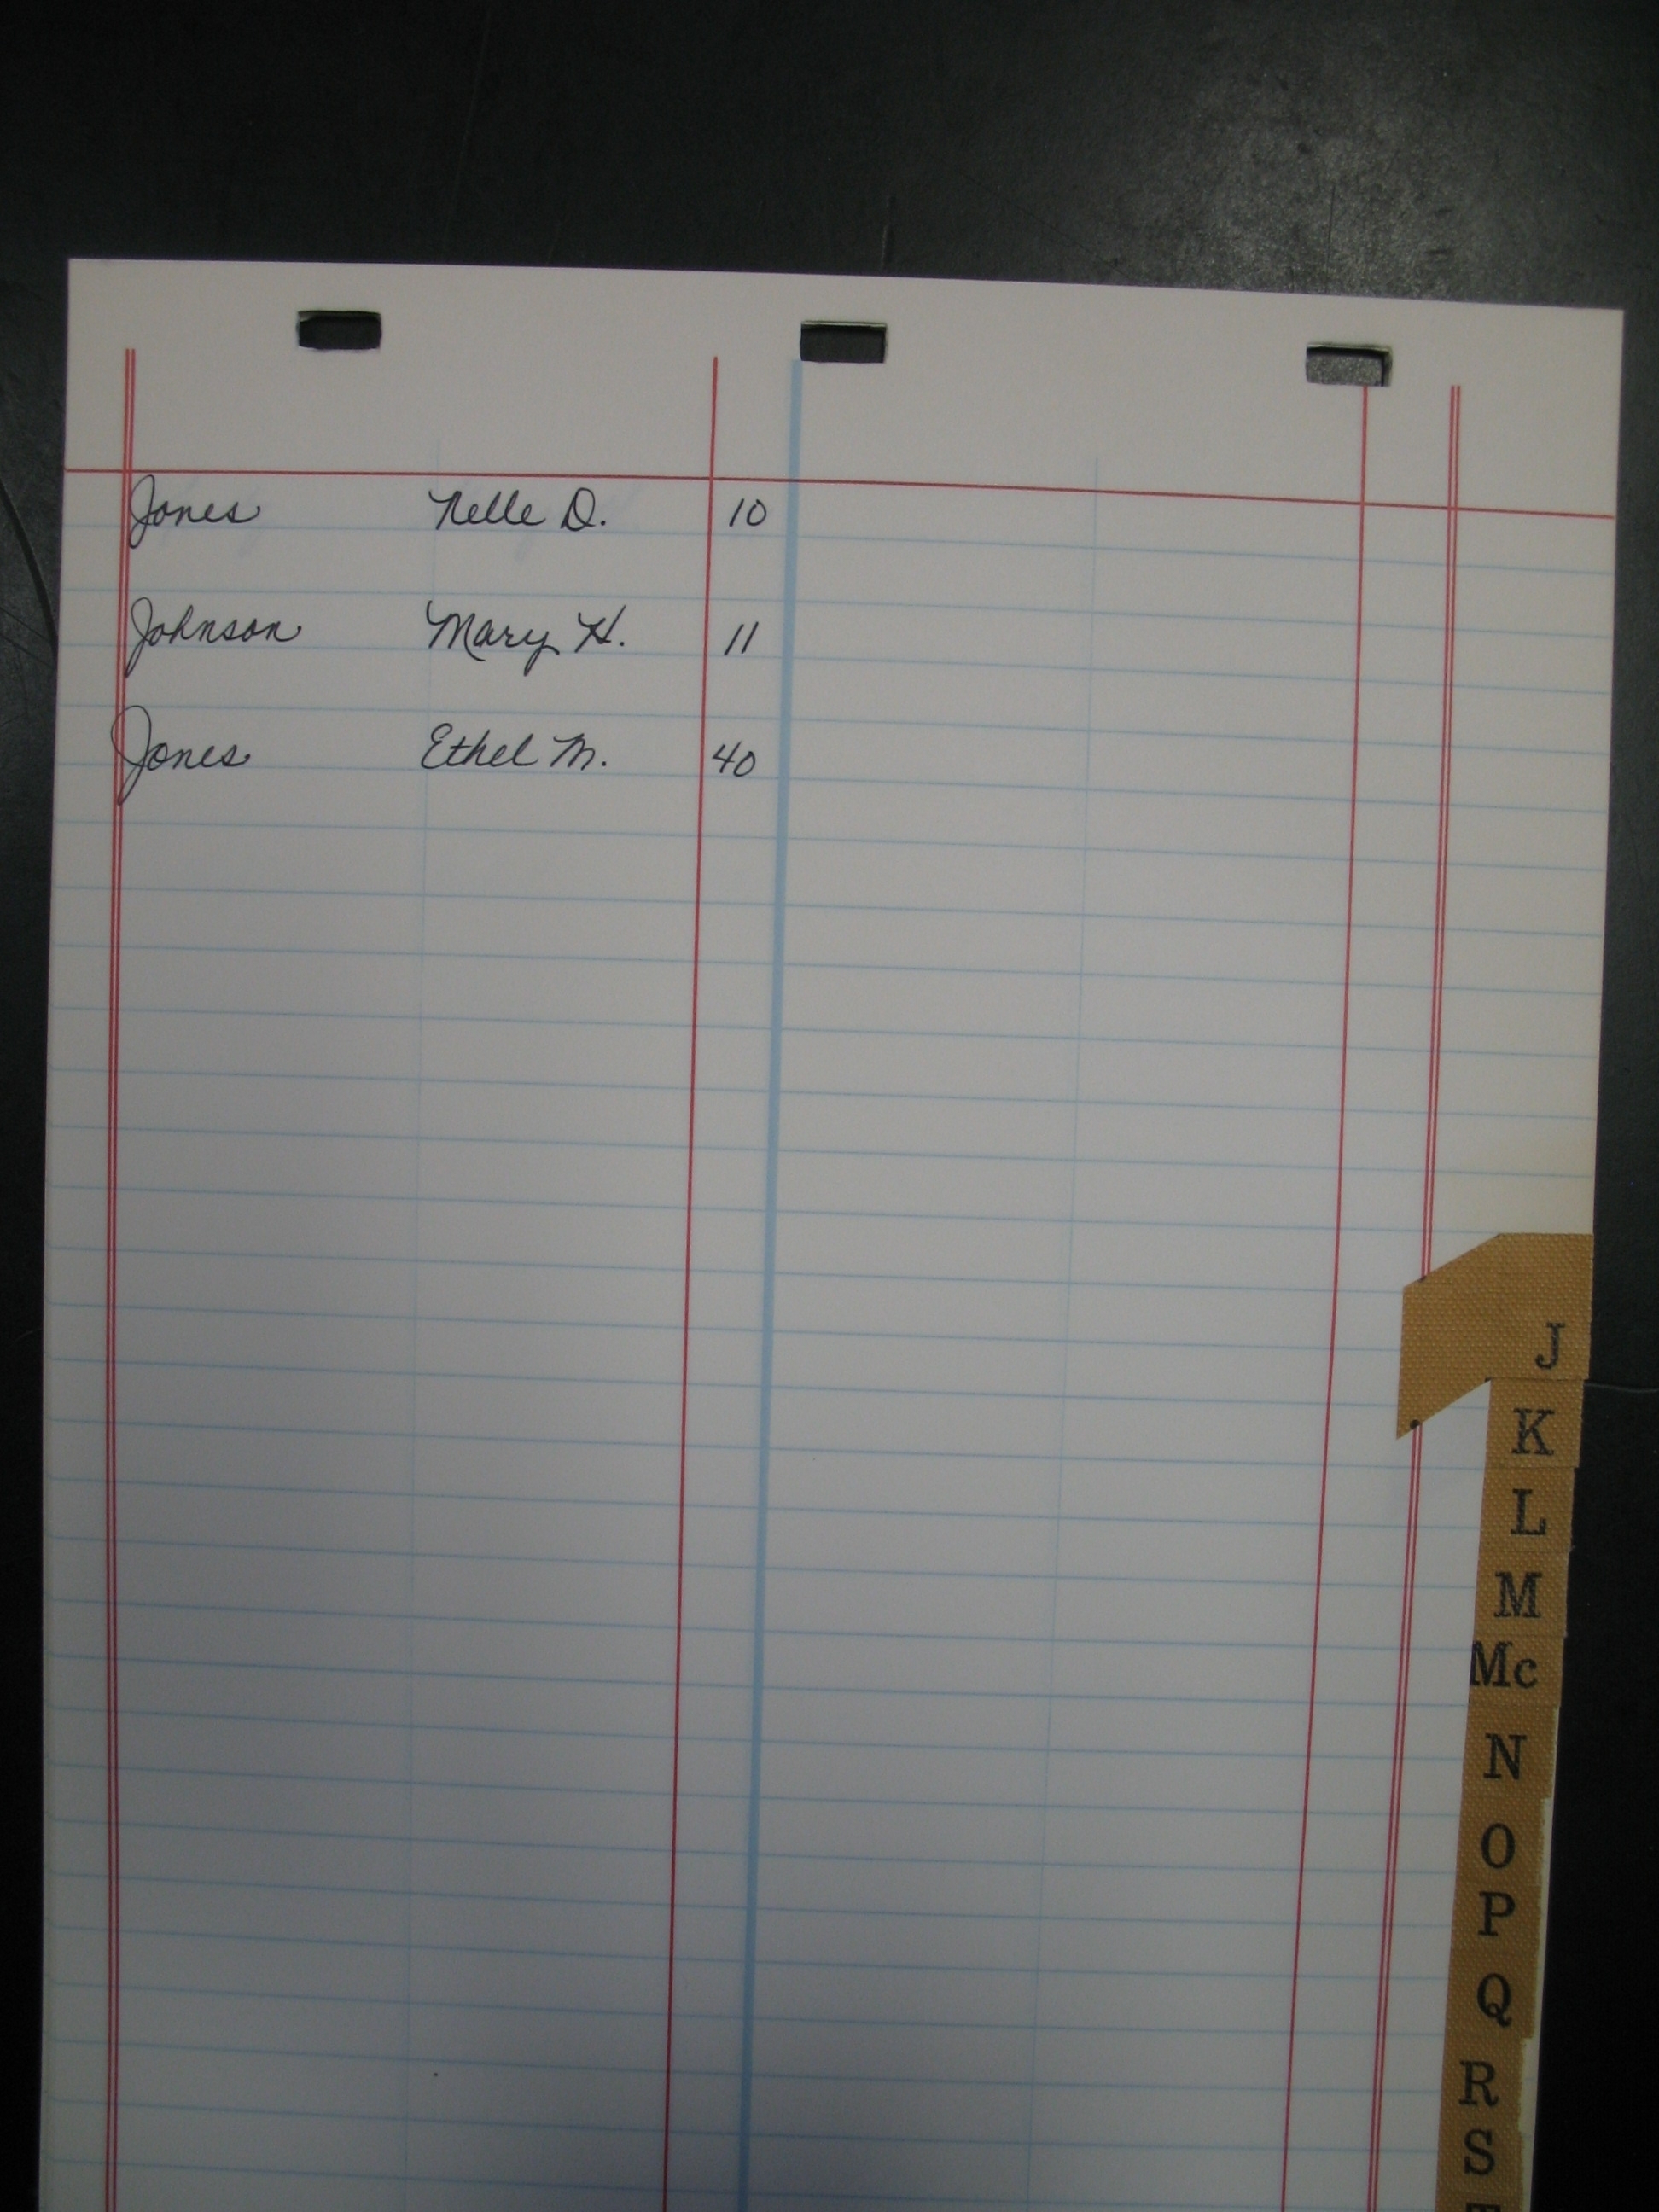 Jones Nelle D. 10
Johnson Mary H. 11
Jones Ethel M. 40
J
K
L
M
Mc
N
O
P
Q
R
S